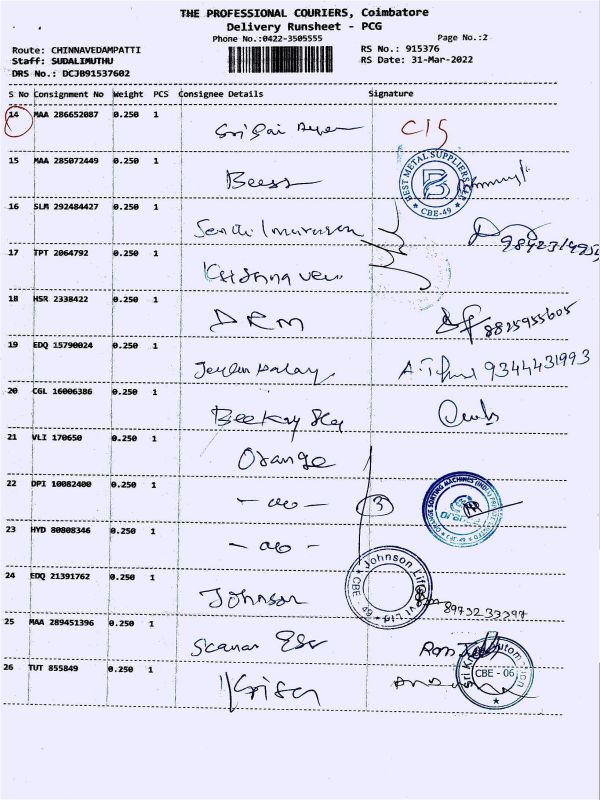 THE PROFESSIONAL COURIERS, Coimbatore
Delivery Runsheet - PCG
Phone No.:0422-3505555 Page No.:2
Route: CHINNAVEDAMPATTI RS No.: 915376
Staff: SUDALIMUTHU RS Date: 31-Mar-2022
DRS No.: DCJB91537602
S No Consignment No Weight PCS Consignee Details Signature
14 MAA 286652087 0.250 1 Sri Sai
15 MAA 285072449 0.250 1 Beess
BEST METAL SUPPLIERS
CBE-49
16 SLM 292484427 0.250 1
17 TPT 2064792 0.250 1
18 HSR 2338422 0.250 1 DRM 8825955605
19 EDQ 15790024 0.250 1 9344431993
20 CGL 16006386 0.250 1 Beekay
21 VLI 170650 0.250 1 Orange
22 DPI 10082400 0.250 1 - do - 3
ORANGE SORTING MACHINES (INDIA)
23 HYD 80808346 0.250 1 - do -
24 EDQ 21391762 0.250 1 Johnson
Johnson Lift
CBE - 49
25 MAA 289451396 0.250 1
26 TUT 855849 0.250 1
CBE - 06